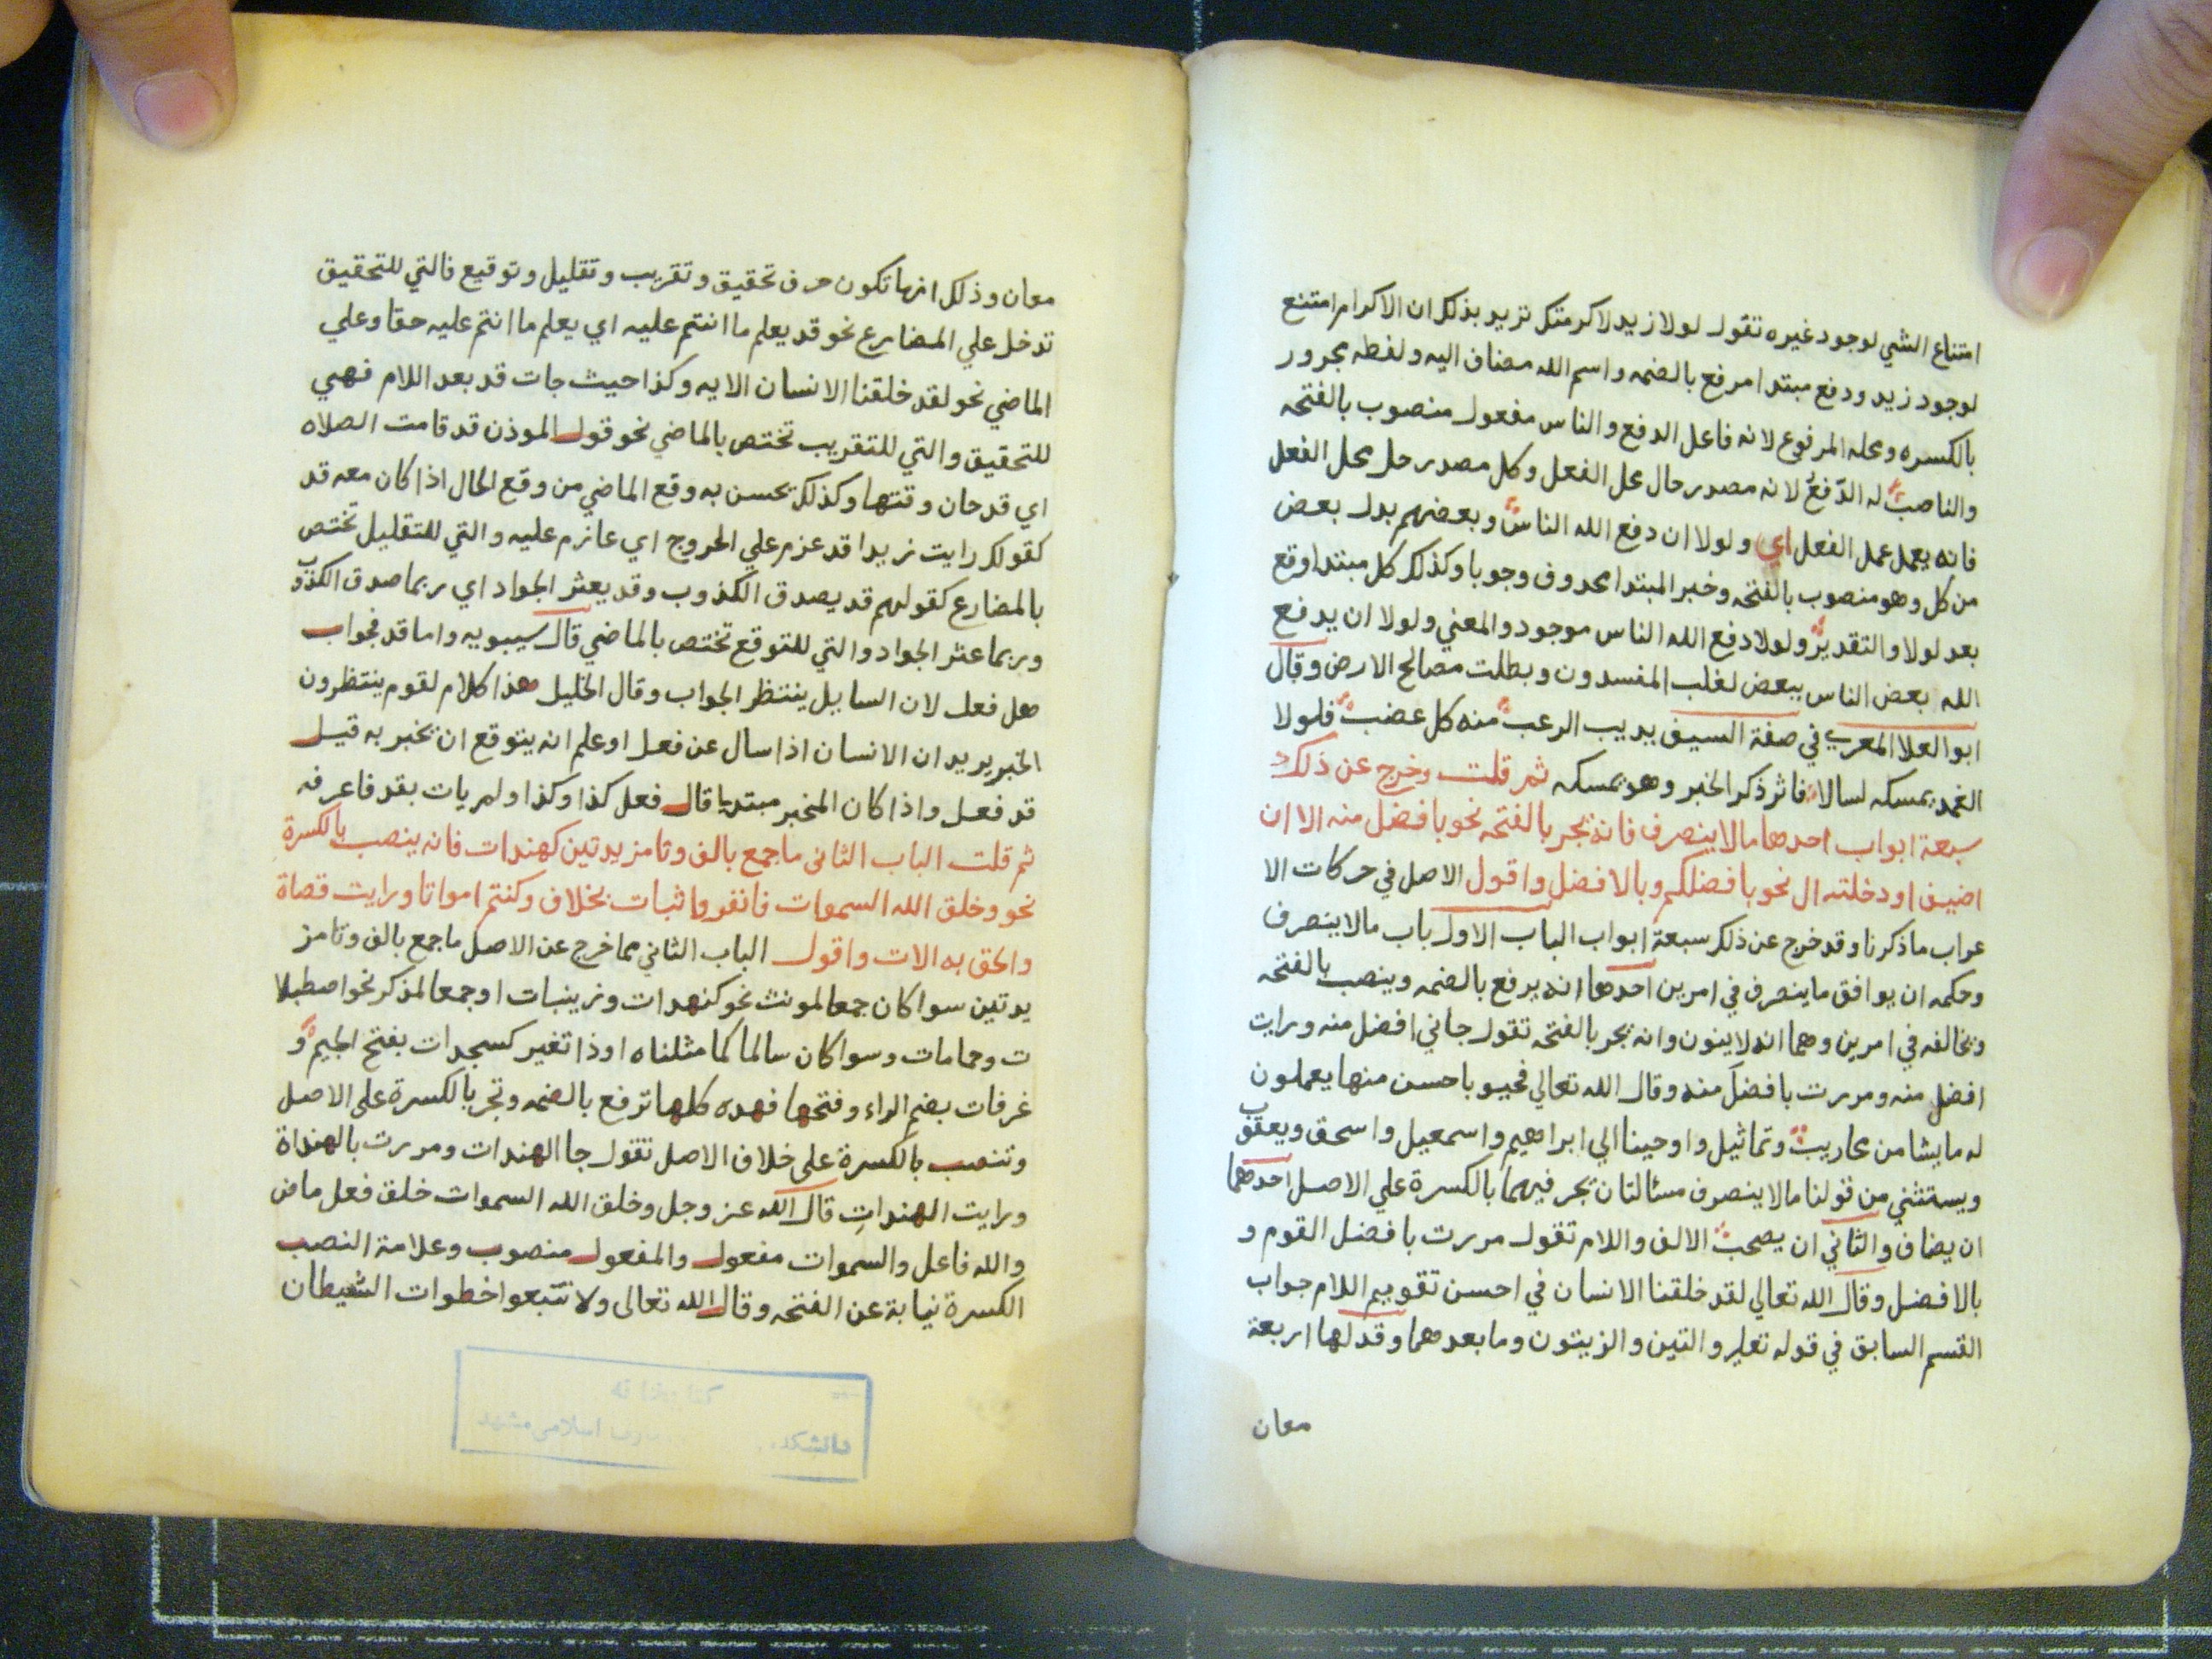 امتناع الشي لوجود غيره تقول لولا زيد لاكرمتك تريد بذلك ان الاكرام امتنع
لوجود زيد ودفع مبتدا مرفع بالضمه واسم الله مضاف اليه ولفظه مجرور
بالكسره ومحله المرفوع لانه فاعل الدفع والناس مفعول منصوب بالفتحه
والناصب له الدّفع لانه مصدر حال محل الفعل وكل مصدر حل محل الفعل
فانه يعمل عمل الفعل اي ولولا ان دفع الله الناس وبعضهم بدل بعض
من كل وهو منصوب بالفتحه وخبر المبتدا محدوف وجوبا وكذلك كل مبتدا وقع
بعد لولا والتقدير ولولا دفع الله الناس موجود والمعني ولولا ان يدفع
الله بعض الناس ببعض لغلب المفسدون وبطلت مصالح الارض وقال
ابو العلا المعري في صفة السيف يديب الرعب منه كل عضب فلولا
الغمد يمسكه لسالا فاثر ذكر الخبر وهو يمسكه ثم قلت وخرج عن ذلك
سبعة ابواب احدها مالا ينصرف فانه يجر بالفتحه نحو بافضل منه الا ان
اضيف او دخلته ال نحو بافضلكم وبالافضل واقول الاصل في حركات الا
عراب ما ذكرنا وقد خرج عن ذلك سبعة ابواب الباب الاول باب مالا ينصرف
وحكمه ان يوافق ما ينصرف في امرين احدها انه يرفع بالضمه وينصب بالفتحه
ويخالفه في امرين وهما انه لا ينون وانه يجر بالفتحه تقول جاني افضل منه ورايت
افضل منه ومررت بافضلَ منه وقال الله تعالي فحيو باحسن منها يعملون
له ما يشا من محاريب وتماثيل واوحينا الي ابراهيم واسمعيل واسحق ويعقوب
ويستثني من قولنا مالا ينصرف مسالتان يجر فيهما بالكسرة علي الاصل احدهما
ان يضاف والثاني ان يصحب الالف واللام تقول مررت بافضل القوم و
بالافضل وقال الله تعالي لقد خلقنا الانسان في احسن تقويم اللام جواب
القسم السابق في قوله تعلي والتين والزيتون وما بعدهما وقد لها اربعة
معان
معان وذلك انها تكون حرف تحقيق وتقريب وتقليل وتوقيع فالتي للتحقيق
تدخل علي المضارع نحو قد يعلم ما انتم عليه اي يعلم ما انتم عليه حقا وعلي
الماضي نحو لقد خلقنا الانسان الايه وكذا حيث جات قد بعد اللام فهي
للتحقيق والتي للتقريب تختص بالماضي نحو قول الموذن قد قامت الصلاه
اي قد حان وقتها وكذلك يحسن به وقع الماضي من وقع الحال اذا كان معه قد
كقولك رايت زيدا قد عزم علي الخروج اي عازم عليه والتي للتقليل تختص
بالمضارع كقولهم قد يصدق الكذوب وقد يعثر الجواد اي ربما صدق الكذوب
وربما عثر الجواد والتي للتوقع تختص بالماضي قال سيبويه واما قد فجواب
هل فعل لان السايل ينتظر الجواب وقال الخليل هذا كلام لقوم ينتظرون
الخبر يريد ان الانسان اذا سال عن فعل او علم انه يتوقع ان يخبر به قيل
قد فعل واذا كان المخبر مبتديا قال فعل كذا وكذا ولم يات بقد فاعرفه
ثم قلت الباب الثاني ما جمع بالف وتا مزيدتين كهندات فانه ينصب بالكسرة
نحو وخلق الله السموات فانفروا ثبات بخلاف وكنتم امواتا ورايت قضاة
والحق به الات واقول الباب الثاني مما خرج عن الاصل ما جمع بالف وتا مز
يدتين سوا كان جمعا لمونث نحو كنهدات وزينبات او جمعا لمذكر نحو اصطبلا
ت وحمامات وسوا كان سالما كما مثلناه او ذا تغير كسجدات بفتح الجيم و
غرفات بضم الراء وفتحها فهده كلها ترفع بالضمه وتجر بالكسرة على الاصل
وتنصب بالكسرة على خلاف الاصل تقول جا الهندات ومررت بالهنداة
ورايت الهنداتِ قال الله عز وجل وخلق الله السموات خلق فعل ماض
والله فاعل والسموات مفعول والمفعول منصوب وعلامة النصب
الكسرة نيابة عن الفتحه وقال الله تعالى ولا تتبعوا خطوات الشيطان
اسلامى مشهد